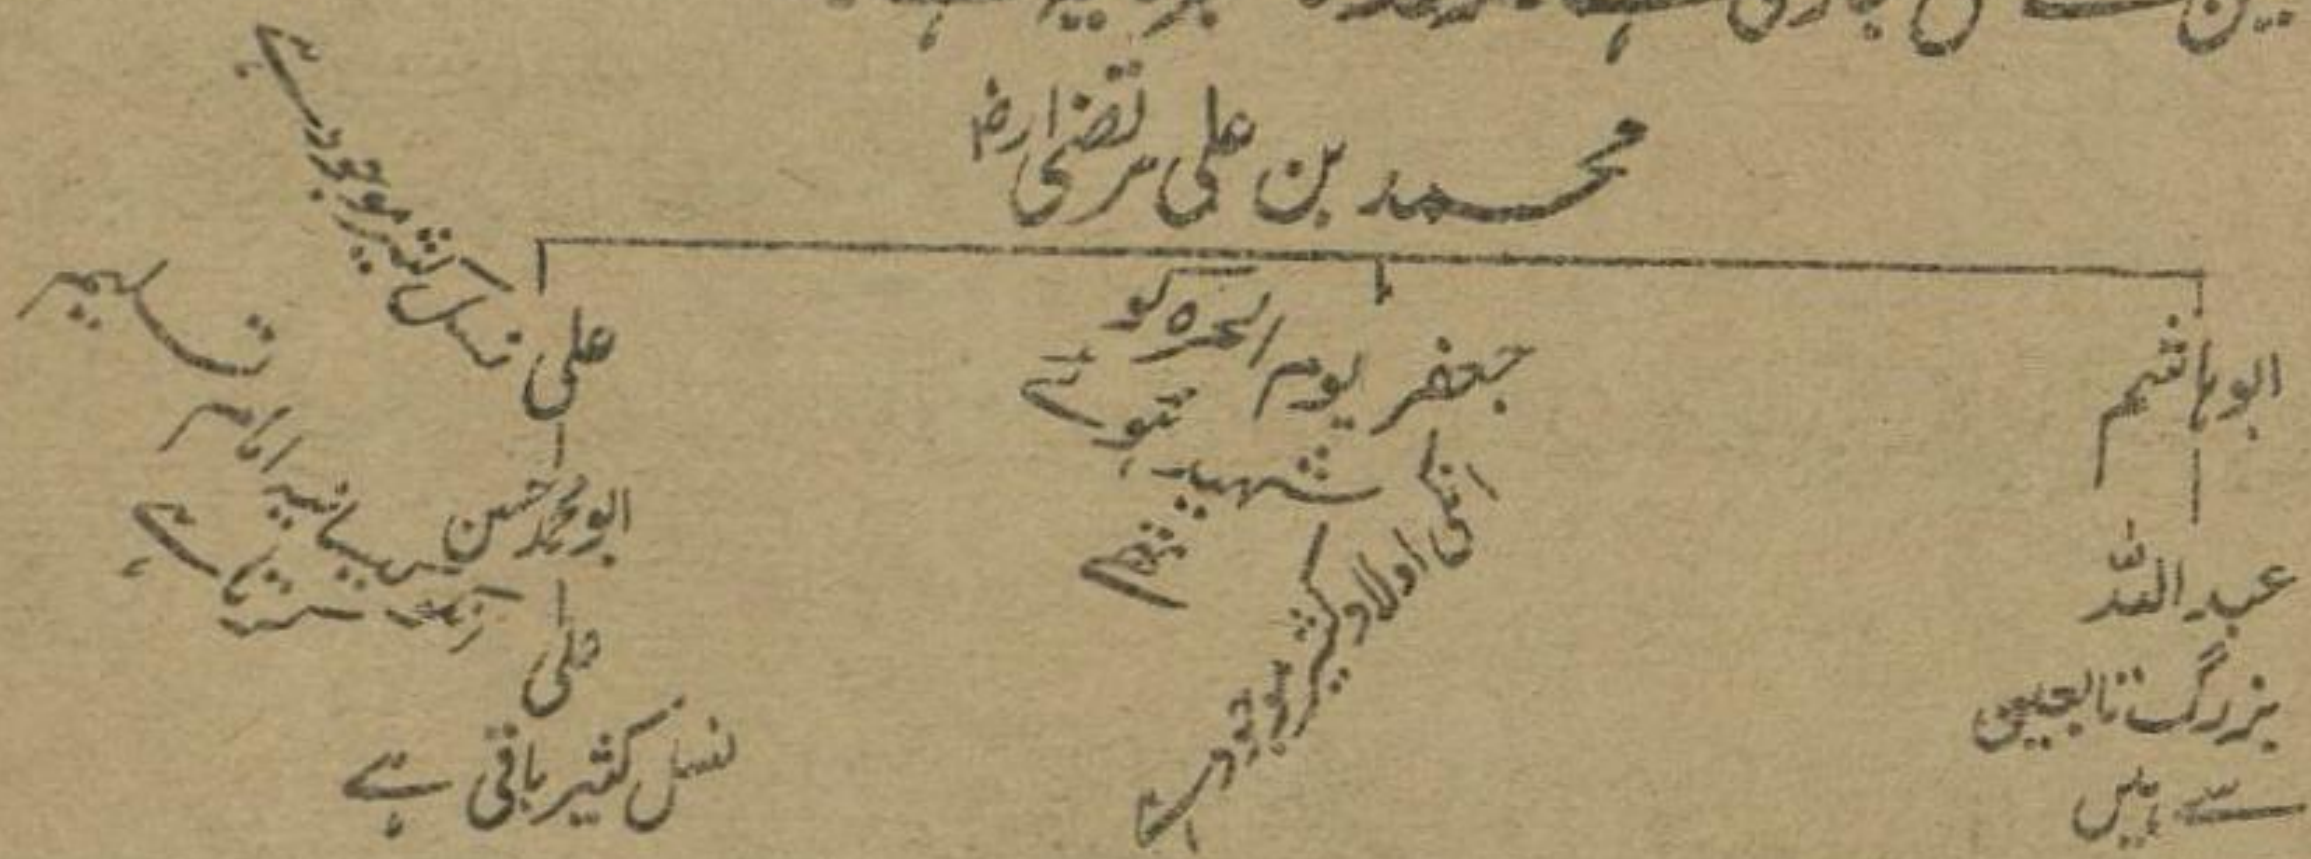 محمد بن علی مرتضیٰ رضؓ
ابو ہاشم
عبد اللہ
بزرگ تابعین
سے ہیں
جعفر یوم الحرہ کو
شہید ہوئے
تھے
انکی اولاد کثیر موجود ہے
علی نسل کثیر موجود ہے
ابو محمد حسن
علی
نسل کثیر باقی ہے